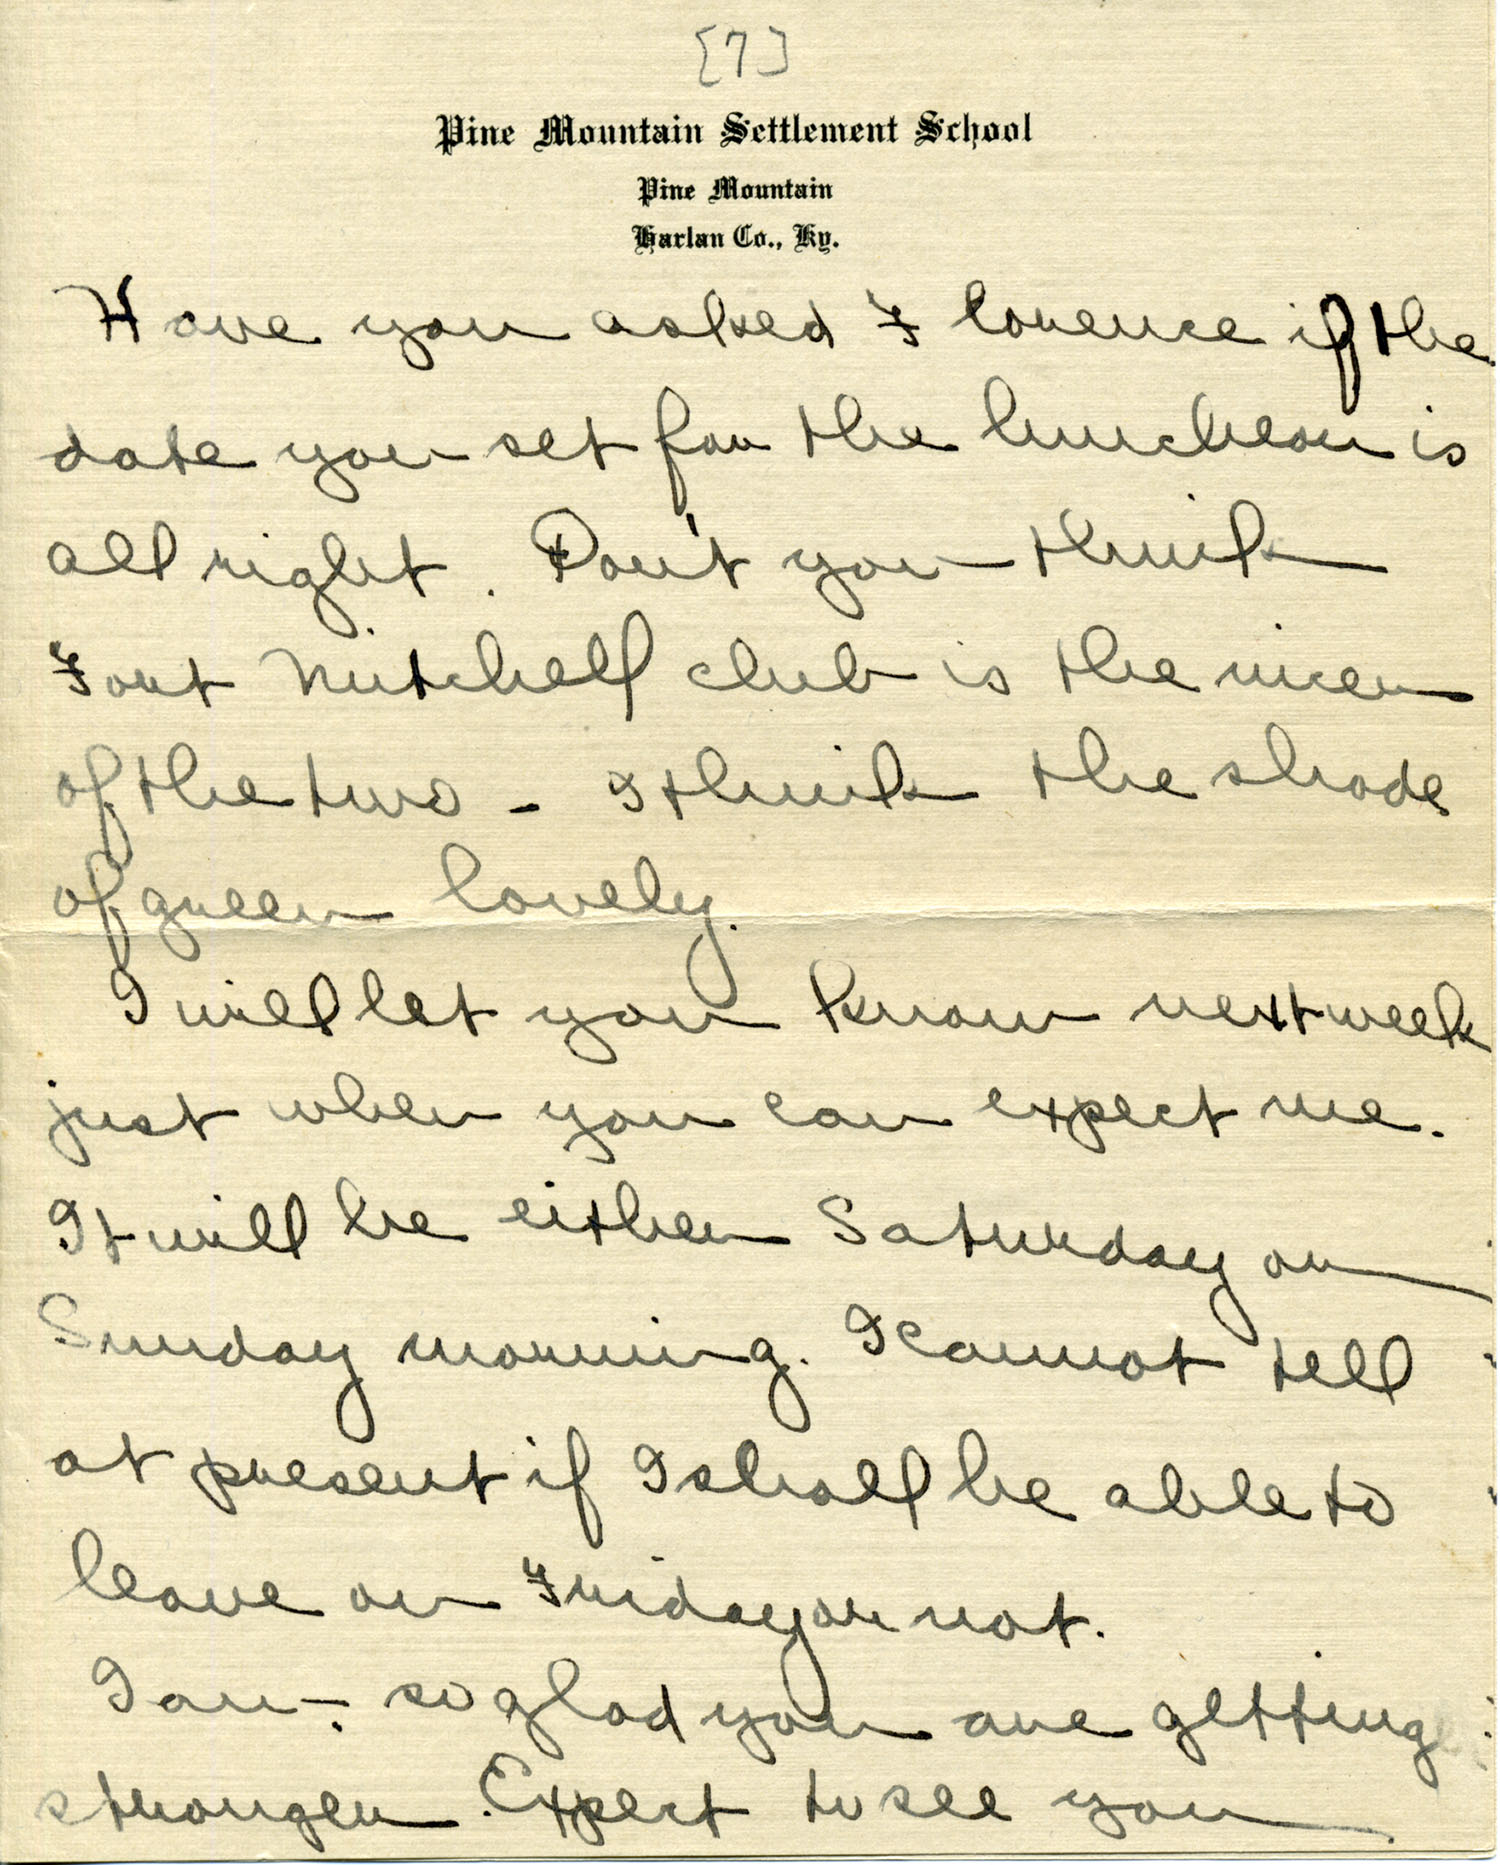 [7]
Pine Mountain Settlement School
Pine Mountain
Harlan Co., Ky.
Have you asked Florence if the
date you set for the luncheon is
all right. Don't you think
Fort Mitchell club is the nicer
of the two - I think the shade
of green lovely.
I will let you know next week
just when you can expect me.
It will be either Saturday or
Sunday morning. I cannot tell
at present if I shall be able to
leave on Friday or not.
I am so glad you are getting
stronger. Expect to see you